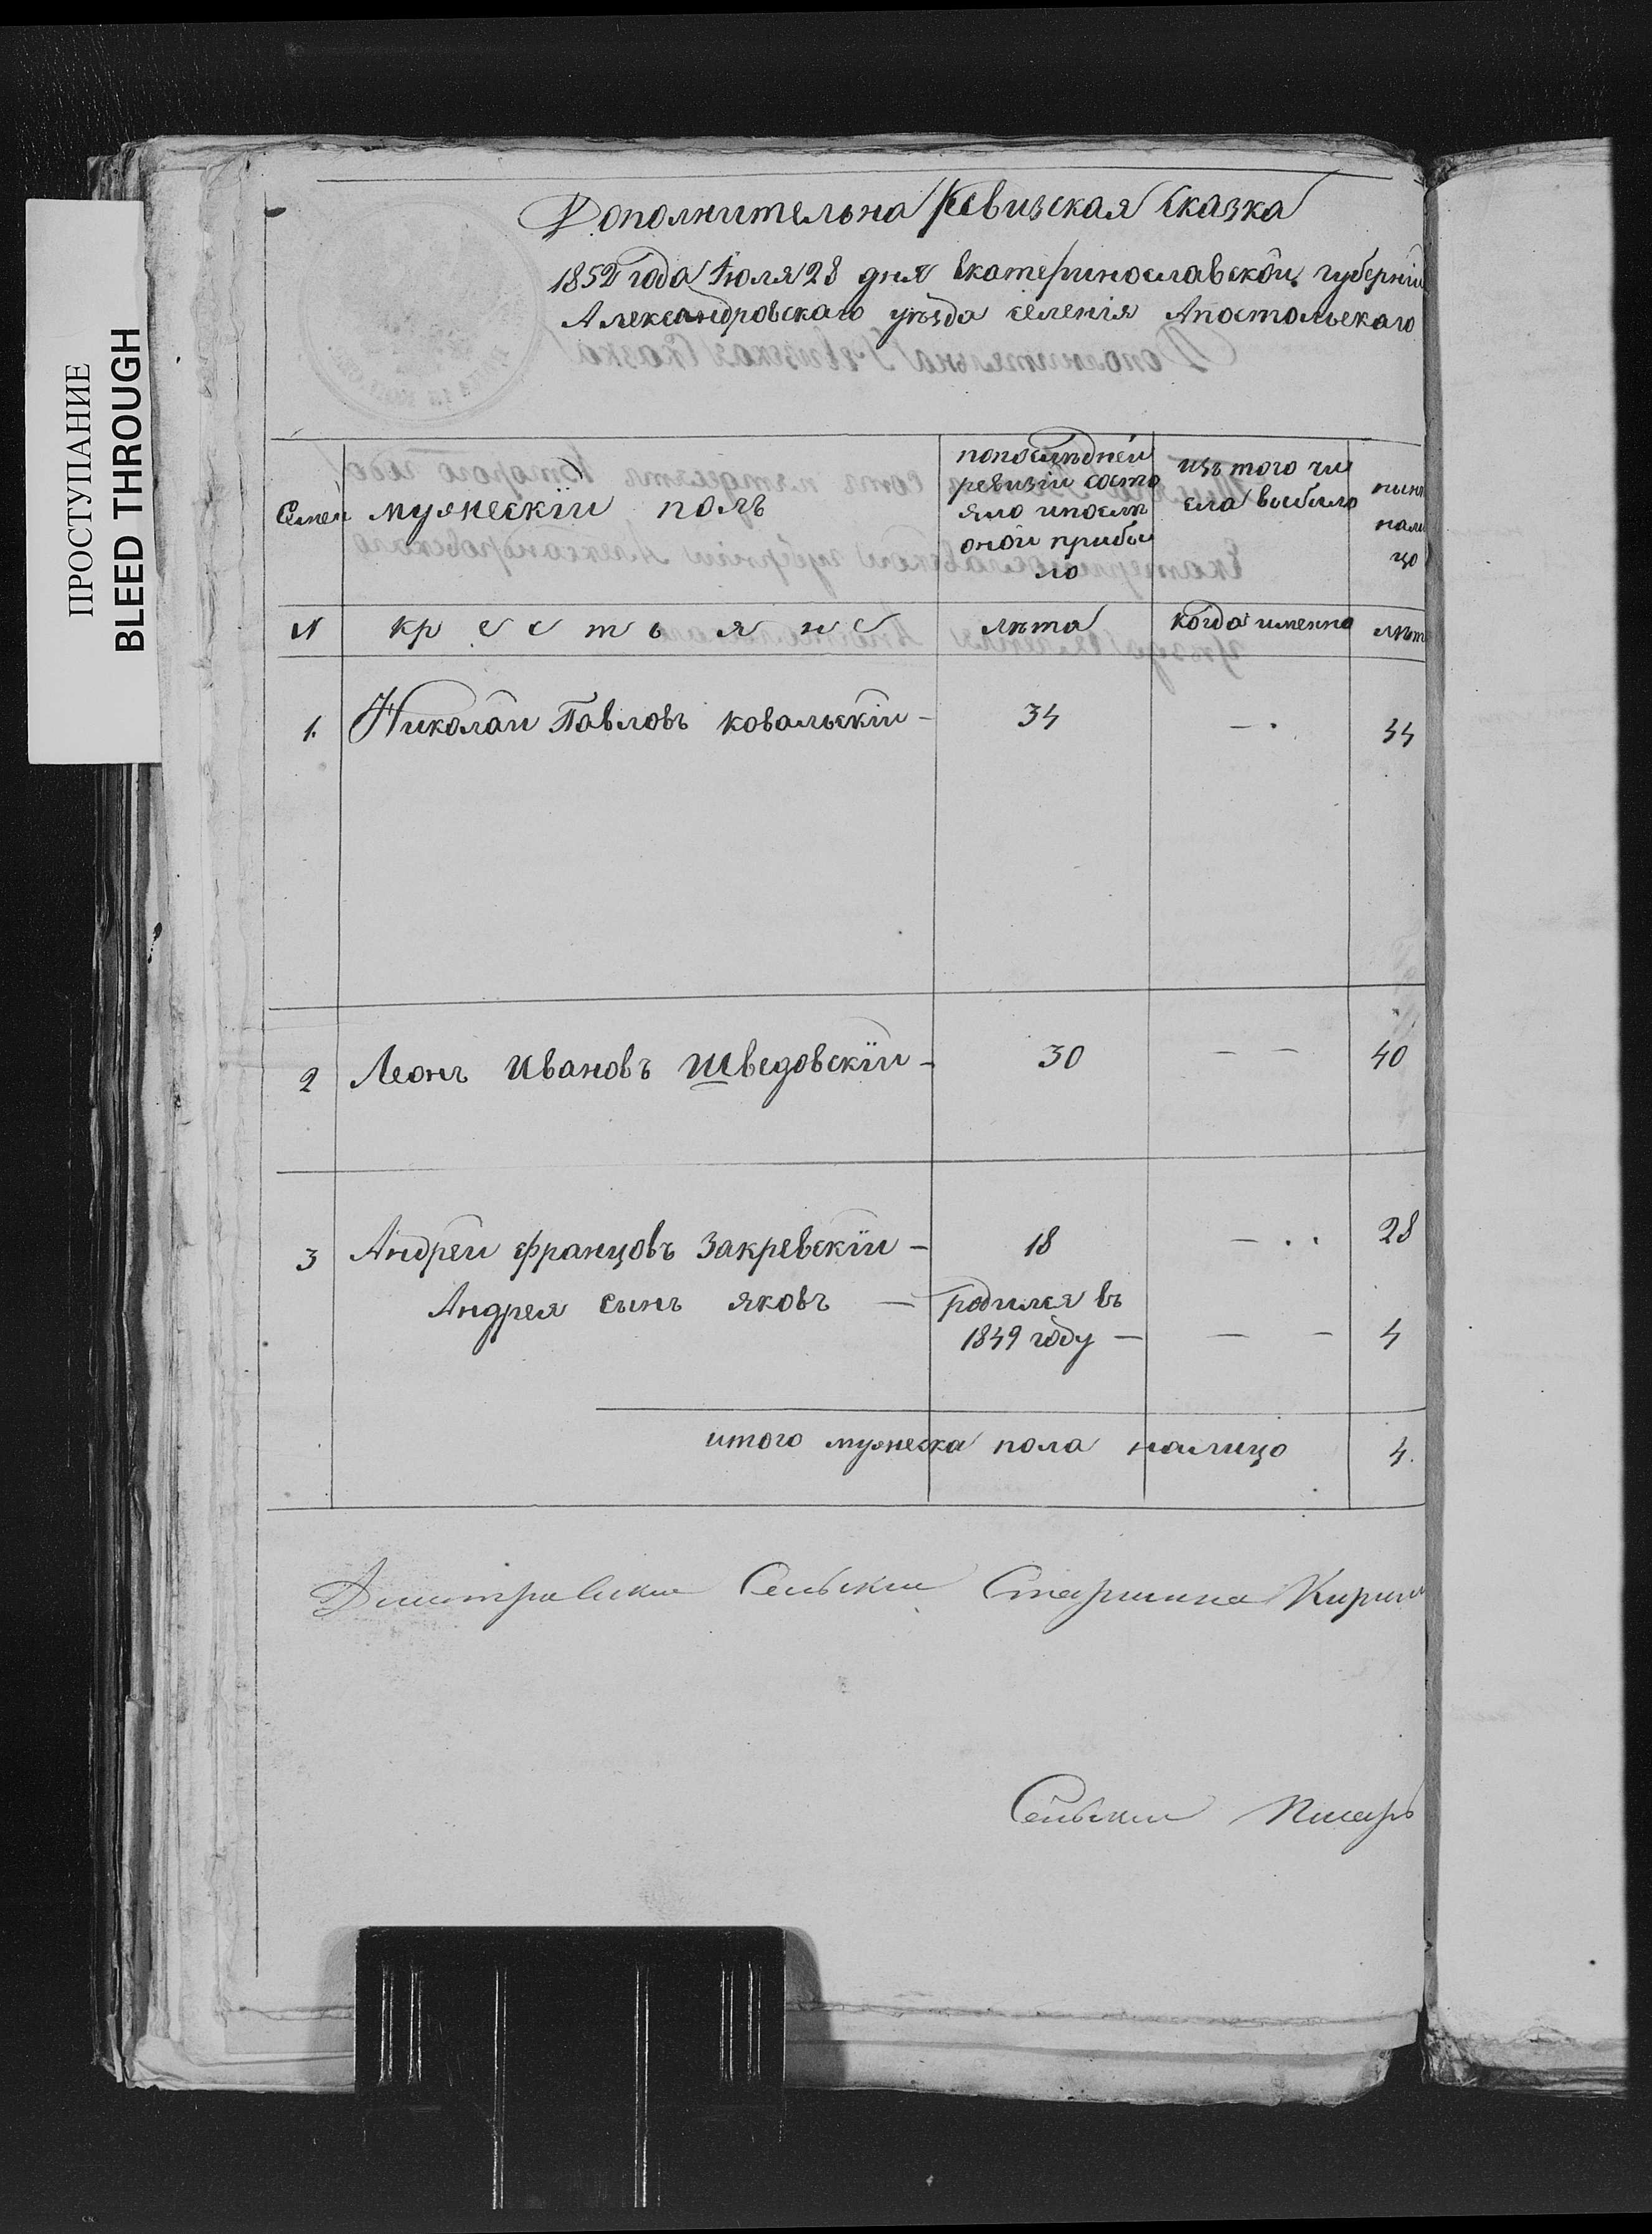 ПРОСТУПАНИЕ
BLEED THROUGH
Дополнительна Ревизская Сказка
1852 года Іюля 28 дня Екатеринославской губерніи
Александровскаго уѣзда селенія Апостольскаго
Семеи
мужескіи полъ
попослѣдней
ревизіи состо
яло ипослѣ
оной прибы
ло
изъ того чи
сла выбыло
нынѣ
нали
цо
N
крестьяне
лѣта
когда именно
лѣта
1. Николаи Павловъ ковальскіи - 34 - . 44
2 Леонъ Ивановъ Шведовскіи - 30 - - 40
3 Андреи Францовъ Закревскіи - 18 - . . 28
Андрея сынъ яковъ - родился въ
1849 году - - - 4
итого мужеска пола налицо 4.
Димитровскии Сельскии Старшина Кирил
Сельскии Писарь